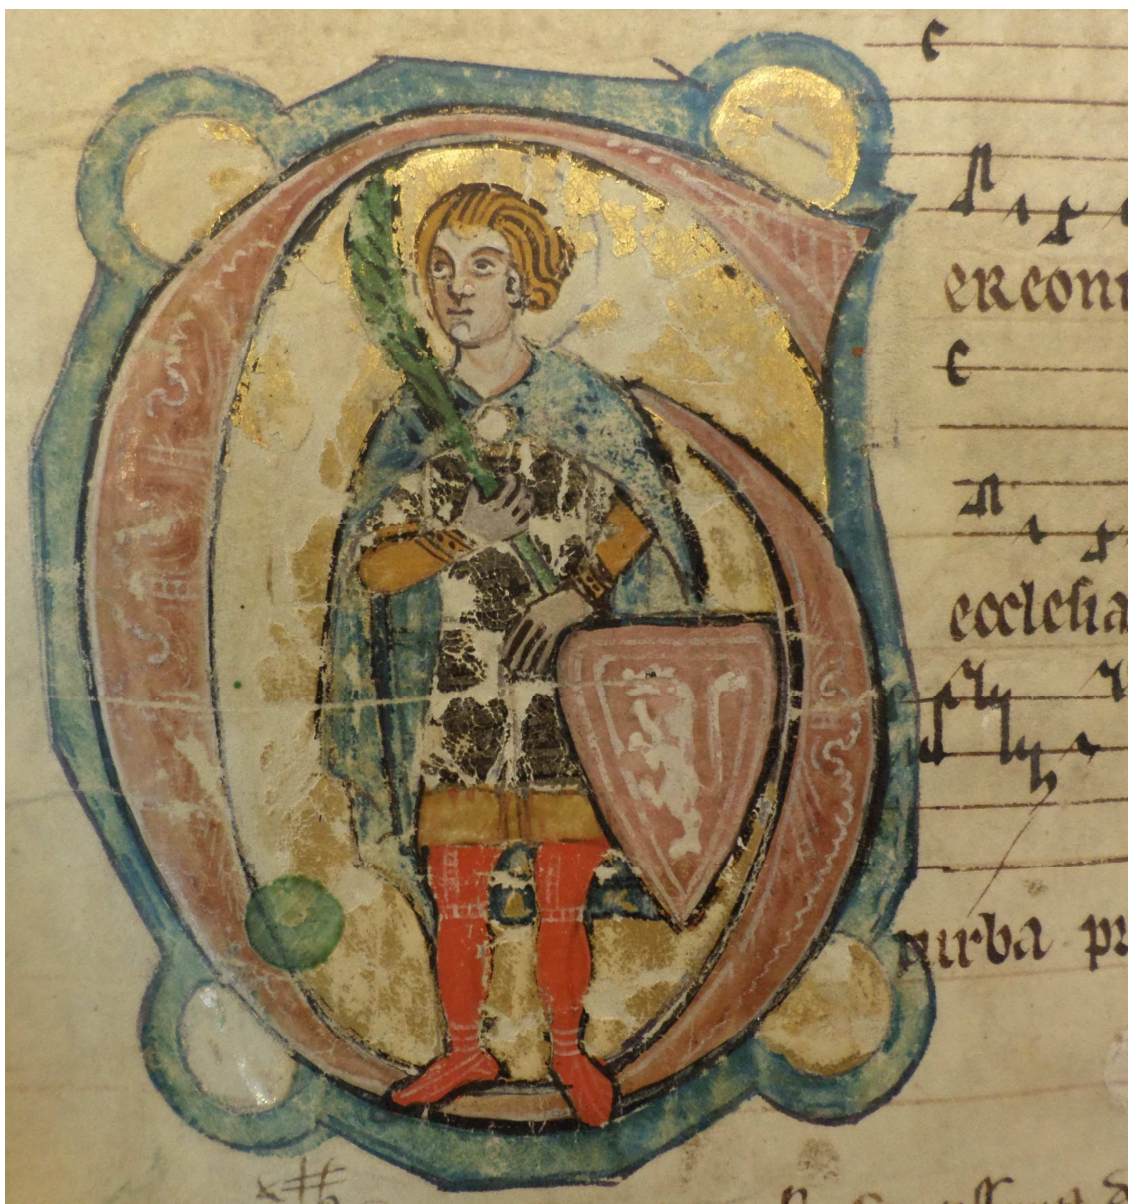 Gereoni
ecclesia
turba pr